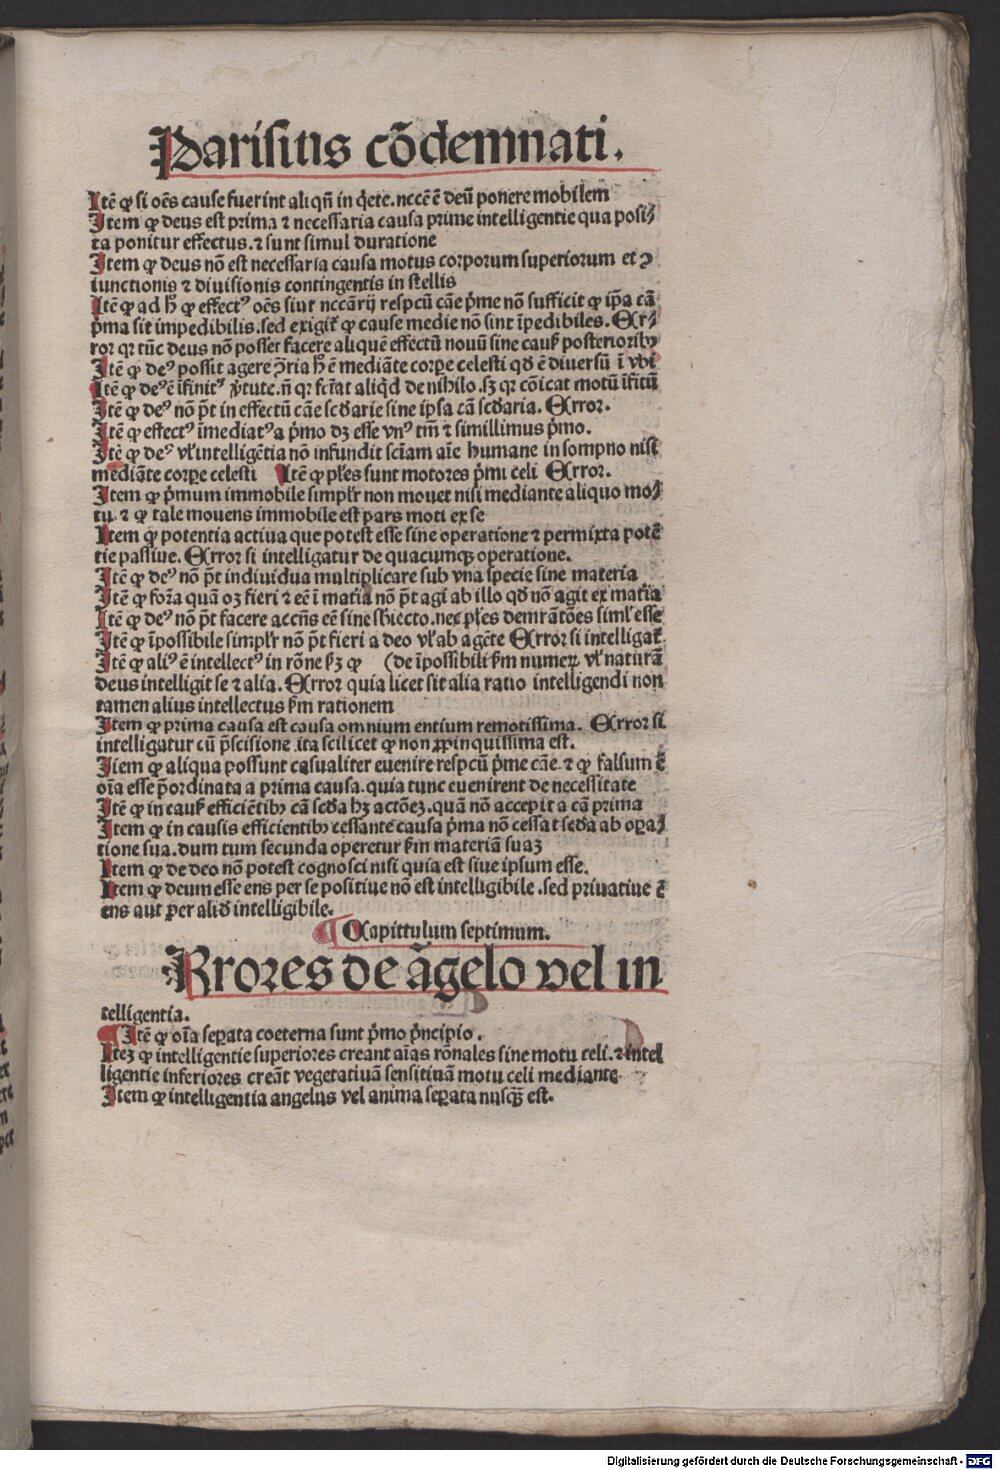 Parisius cōdemnati.
Itē ꝙ si oēs cause fuerint aliqn̄ in q̇ete. nccē ē deū ponere mobilem
Item ꝙ deus est prima ⁊ necessaria causa prime intelligentie qua posi⸗
ta ponitur effectus. ⁊ sunt simul duratione
Item ꝙ deus nō est necessaria causa motus corporum superiorum et ↄ
iunctionis ⁊ diuisionis contingentis in stellis
Itē ꝙ ad hͦ ꝙ effectꝰ oēs sint nccārij respcū cāe p̄me nō sufficit ꝙ ip̄a cā
p̄ma sit impedibilis. sed exigit̄ ꝙ cause medie nō sint īpedibiles. Er⸗
ror qꝛ tūc deus nō posset facere aliquē effectū nouū sine caus̄ posterioribꝰ
Itē ꝙ deꝰ possit agere ↄ̄ria hͦ ē mediāte corꝑe celesti qd̄ ē diuersū ī vbi
Itē ꝙ deꝰ ē īfinitꝰ v̄tute. n̄ qꝛ fc̄iat aliq̇d de nihilo. sꝫ qꝛ cōicat motū īfitū
Itē ꝙ deꝰ nō p̄t in effectū cāe scd̄arie sine ipsa cā scd̄aria. Error.
Itē ꝙ effectꝰ īmediatꝰ a p̄mo dꝫ esse vnꝰ tm̄ ⁊ simillimus p̄mo.
Itē ꝙ deꝰ vl̄ intelligētia nō infundit sc̄iam aīe humane in sompno nisi
mediāte corꝑe celesti Itē ꝙ pl̄es sunt motores p̄mi celi Error.
Item ꝙ p̄mum immobile simpl̄r non mouet nisi mediante aliquo mo⸗
tu. ⁊ ꝙ tale mouens immobile est pars moti ex se
Item ꝙ potentia actiua que potest esse sine operatione ⁊ permixta potē
tie passiue. Error si intelligatur de quacumqꝫ operatione.
Itē ꝙ deꝰ nō p̄t indiuidua multiplicare sub vna specie sine materia
Itē ꝙ forma quā oꝫ fieri ⁊ eē ī mat̄ia nō p̄t agi ab illo qd̄ nō agit ex mat̄ia
Itē ꝙ deꝰ nō p̄t facere accn̄s eē sine sbiecto. nec pl̄es demrātōes siml̄ esse
Itē ꝙ īpossibile simpl̄r nō p̄t fieri a deo vl̄ ab agēte Error si intelligat̄
Itē ꝙ aliꝰ ē intellectꝰ in rōne ẜꝫ ꝙ (de īpossibili ẜm numeꝝ vl̄ naturā
deus intelligit se ⁊ alia. Error quia licet sit alia ratio intelligendi non
tamen alius intellectus ẜm rationem
Item ꝙ prima causa est causa omnium entium remotissima. Error si
intelligatur cū p̄scisione ita scilicet ꝙ non ꝓpinquissima est.
Jiem ꝙ aliqua possunt casualiter euenire respcū p̄me cāe. ⁊ ꝙ falsum ē
oīa esse p̄ordinata a prima causa. quia tunc euenirent de necessitate
Itē ꝙ in caus̄ efficiētibꝰ cā scd̄a hꝫ actōeꝫ. quā nō accepit a cā prima
Item ꝙ in causis efficientibꝰ cessante causa p̄ma nō cessat scd̄a ab oꝑa⸗
tione sua. dum tum secunda operetur ẜm materiā suaꝫ
Item ꝙ de deo nō potest cognosci nisi quia est siue ipsum esse.
Item ꝙ deum esse ens per se positiue nō est intelligibile. sed priuatiue ē
ens aut ꝑer alid̄ intelligibile.
Capittulum septimum.
Errores de āgelo vel in
telligentia.
Itē ꝙ oīa seꝑata coeterna sunt p̄mo p̄ncipio.
Iteꝫ ꝙ intelligentie superiores creant aīas rōnales sine motu celi. ⁊ intel
ligentie inferiores creāt vegetatiuā sensitiuā motu celi mediante
Item ꝙ intelligentia angelus vel anima seꝑata nusqꝫ̄ est.
Digitalisierung gefördert durch die Deutsche Forschungsgemeinschaft - DFG